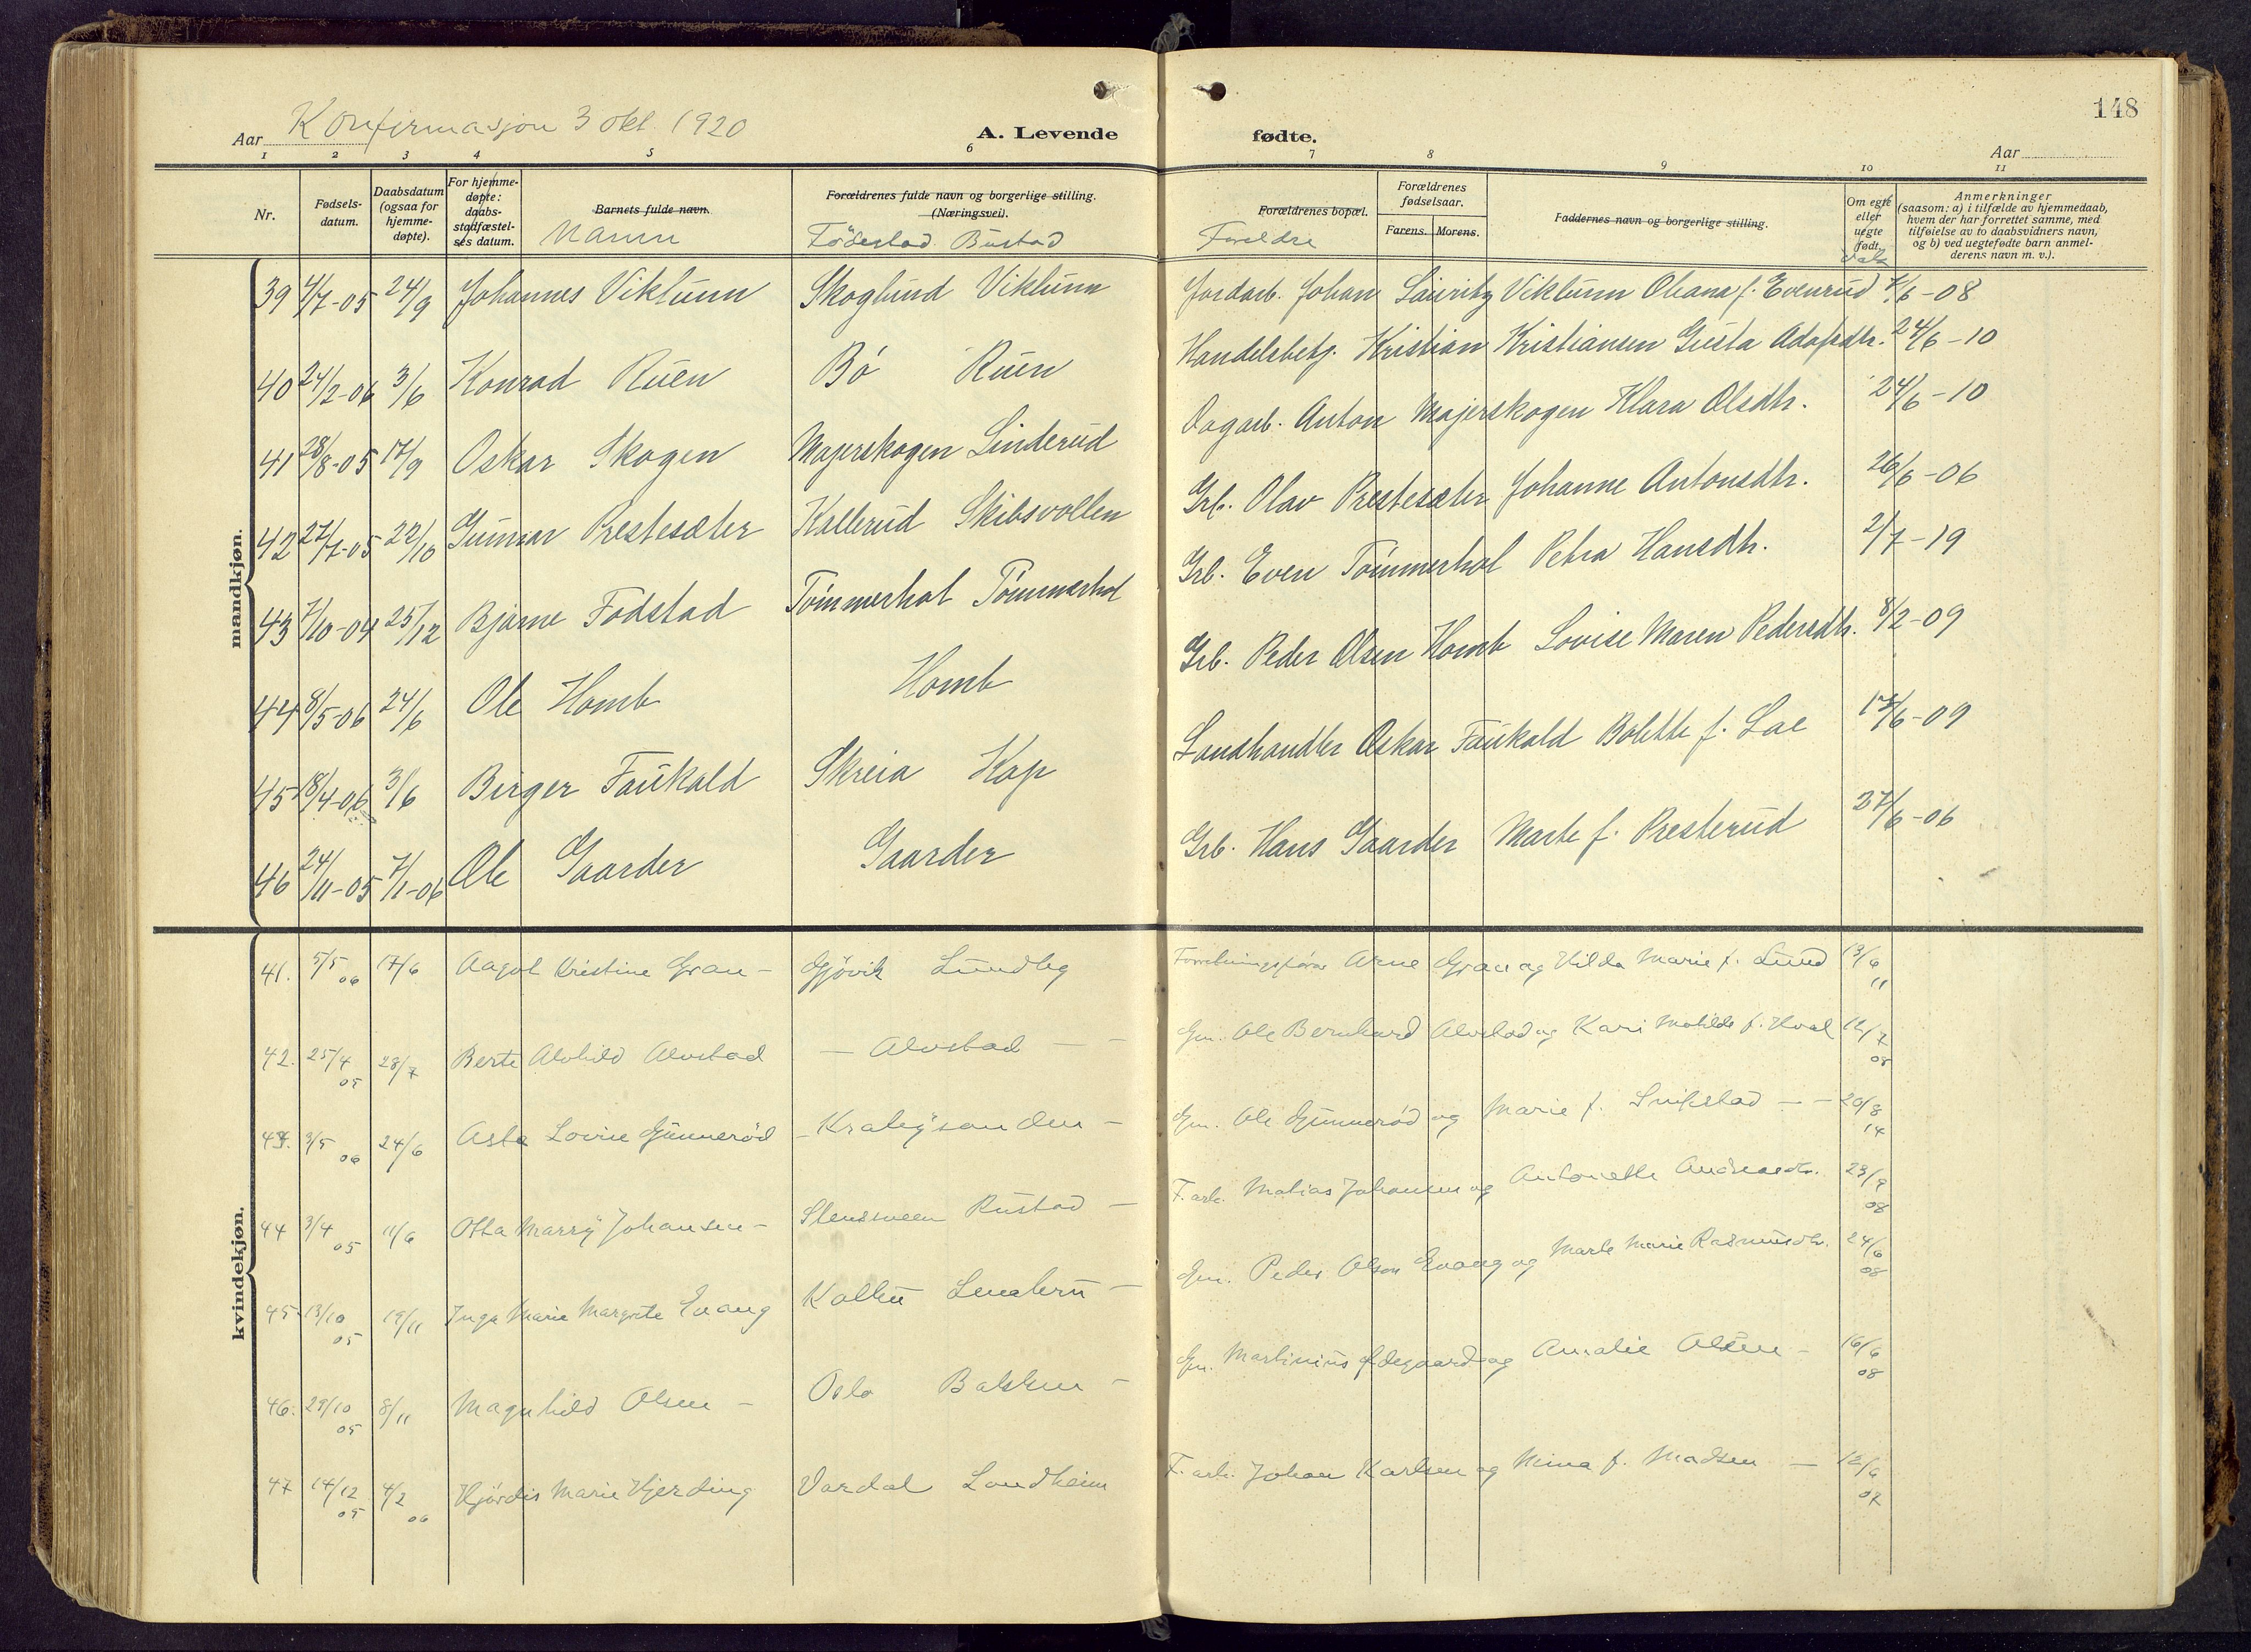 Konfirmasjon 3 okt 1920
148
Aar A. Levende fødte. Aar
1 2 3 4 5 6 7 8 9 10 11
Nr. Fødsels-datum. Daabsdatum (ogsaa for hjemme-døpte). For hjemme-døpte: daabs-stadfæstel-ses datum. Barnets fulde navn. Forældrenes fulde navn og borgerlige stilling. (Næringsvei). Forældrenes bopæl. Forældrenes fødselsaar. Farens. Morens. Faddernes navn og borgerlige stilling. Om egte eller uegte født. Anmerkninger (saasom: a) i tilfælde av hjemmedaab, hvem der har forrettet samme, med tilføielse av to daabsvidners navn, og b) ved uegtefødte barn anmel-derens navn m. v.).
Namn Fødestad Bustad Foreldre Vaks
mandkjøn.
39 4/7-05 24/9 Johannes Viklunn Skoglund Viklunn Jordarb. Johan Lauritz Viklunn Oleana f. Evenrud /6-08
40 24/2-06 3/6 Konrad Ruen Bø Ruen Handelsbetj. Kristian Kristiansen Gusta Adolfsdtr. 24/6-10
41 28/8-05 17/9 Oskar Skogen Majerskogen Linderud Dagarb. Anton Majerskogen Klara Olsdtr. 24/6-10
42 27/7-05 22/10 Gunnar Prestesæter Kollerud Skibsvollen Grb. Olav Prestesæter Johanne Antonsdtr. 26/6-06
43 7/10-04 25/12 Bjarne Fodstad Tømmerhol Tømmerhol Grb. Even Tømmerhol Petra Hansdtr. 2/7-19
44 8/5-06 24/6 Ole Homb Homb Grb. Peder Olsen Homb Lovise Maren Pedersdtr. 8/2-09
45 18/4-06 3/6 Birger Faukald Skreia Kap Landhandler Oskar Faukald Bolette f. Loe /6-09
46 24/11-05 7/1-06 Ole Gaarder Gaarder Grb. Hans Gaarder Marte f. Presterud 27/6-06
kvindekjøn.
41. 5/5 06 17/6 Aagot Kristine Gran - Gjøvik Lundby Forretningsfører Arne Gran og Hilda Marie f. Lund 13/6 11
42. 25/4 05 28/7 Berte Alvhild Alvstad - Alvstad - - Gm. Ole Bernhard Alvstad og Kari Matilde f. Hval 12/7 08
43. 3/5 06 24/6 Asta Lovise Gunnerød - Krabysanden - Gm. Ole Gunnerød og Marie f. - - 20/8 14
44 3/4 05 11/6 Otta Marry Johansen - Stensveen Rustad - F. arb. Matias Johansen og Antonette Andreasdtr. 23/9 08
45. 13/10 05 19/11 Inga Marie Margrete Evang Kolbu Lenabru - Gm. Peder Olsen Evang og Marte Marie Rasmusdtr. 24/6 08
46. 29/10 05 8/11 Magnhild Olsen - Oslo Bakken - Gm. Martinius Ødegaard og Amalie Olsen - 16/6 08
47 14/12 05 4/2 06 Hjørdis Marie Hjerding Vardal Londheim F. arb. Johan Karlsen og Mina f. Madsen - 12/9 07